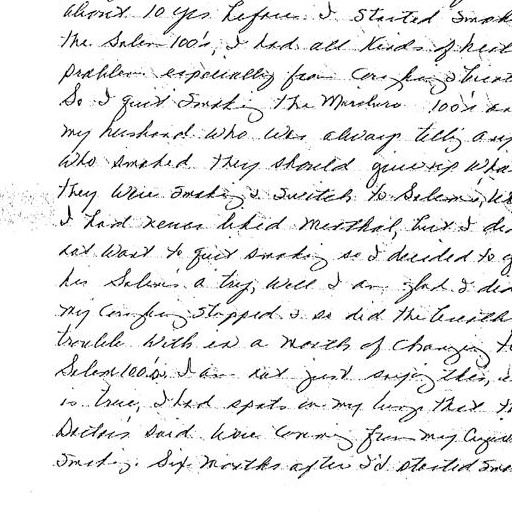 about 10 yrs before I started smok
the Salem 100's, I had all kinds of heal
problem especially from Coughing & breat
So I quit Smoking the Marlboro 100's an
my husband who was always telling any
who smoked they should give up wha
they were smoking & switch to Salem's, We
I had never liked Menthal, but I did
not want to quit smoking so I decided to g
his Salem's a try, Well I am glad I did
my Coughing stopped & so did the breath
trouble with in a Month of Changing to
Salem 100's. I am not just saying this, i
is true, I had spots on my lungs that th
Doctor's said were Comming from my Cigare
Smoking. Six Months after I'd started Smo